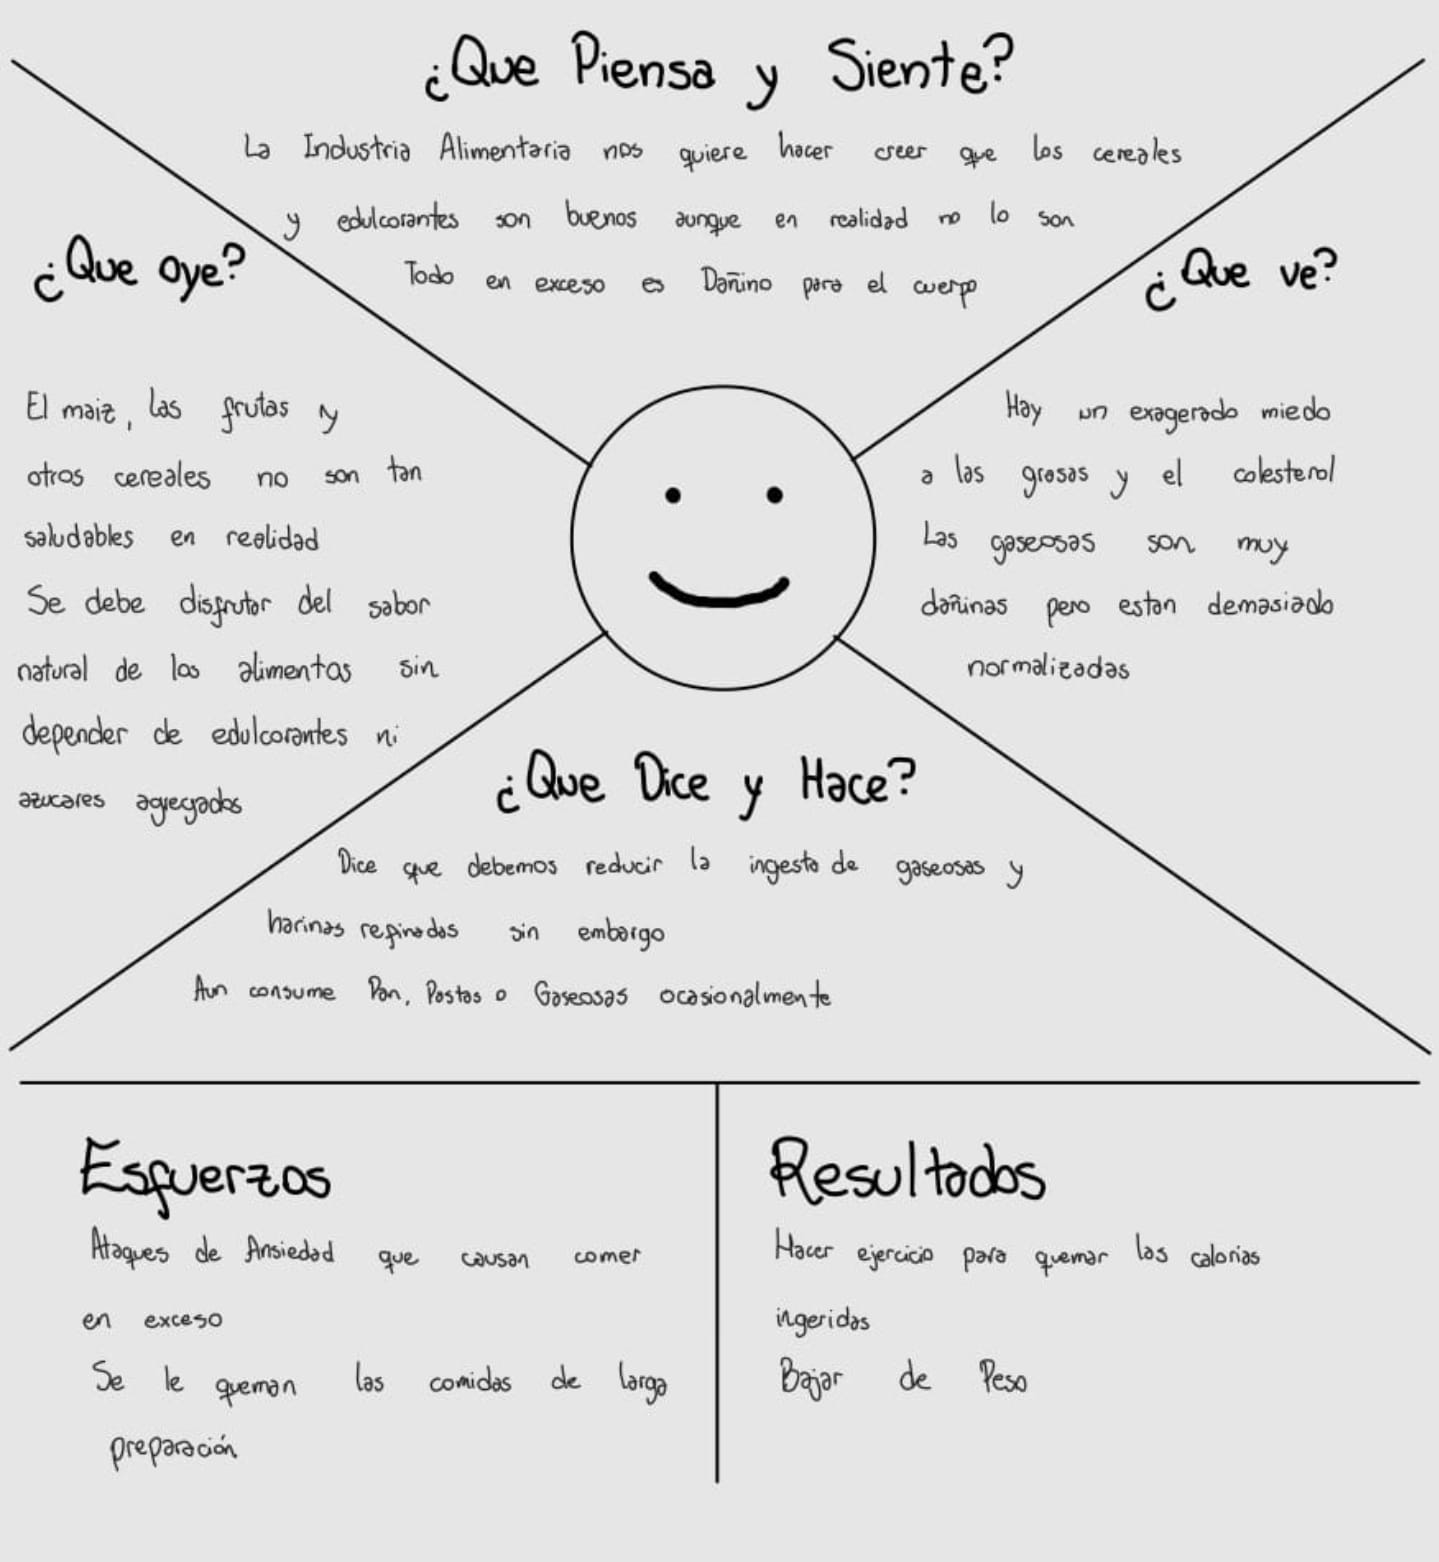 ¿Que Piensa y Siente?
La Industria Alimentaria nos quiere hacer creer que los cereales
y edulcorantes son buenos aunque en realidad no lo son
Todo en exceso es Dañino para el cuerpo
¿Que oye?
El maiz, las frutas y
otros cereales no son tan
saludables en realidad
Se debe disfrutar del sabor
natural de los alimentos sin
depender de edulcorantes ni
azucares agregados
¿Que ve?
Hay un exagerado miedo
a las grasas y el colesterol
Las gaseosas son muy
dañinas pero estan demasiado
normalizadas
¿Que Dice y Hace?
Dice que debemos reducir la ingesta de gaseosas y
harinas refinadas sin embargo
Aun consume Pan, Pastas o Gaseosas ocasionalmente
Esfuerzos
Ataques de Ansiedad que causan comer
en exceso
Se le queman las comidas de larga
preparación
Resultados
Hacer ejercicio para quemar las calorias
ingeridas
Bajar de Peso